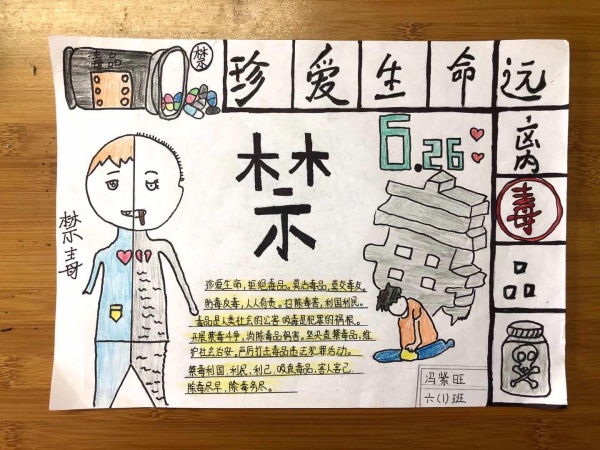 毒品
禁
珍爱生命远
离
毒
品
禁
6.26
禁毒
珍爱生命,拒绝毒品。莫沾毒品,莫交毒友。
防毒反毒,人人有责。扫除毒害,利国利民。
毒品是人类社会的公害 吸毒是犯罪的祸根。
开展禁毒斗争,消除毒品祸害。坚决查禁毒品,维
护社会治安。严厉打击毒品违法犯罪活动。
禁毒利国,利民,利己,吸食毒品,害人害己.
除毒尽早,除毒务尽。
冯紫旺
六(1)班